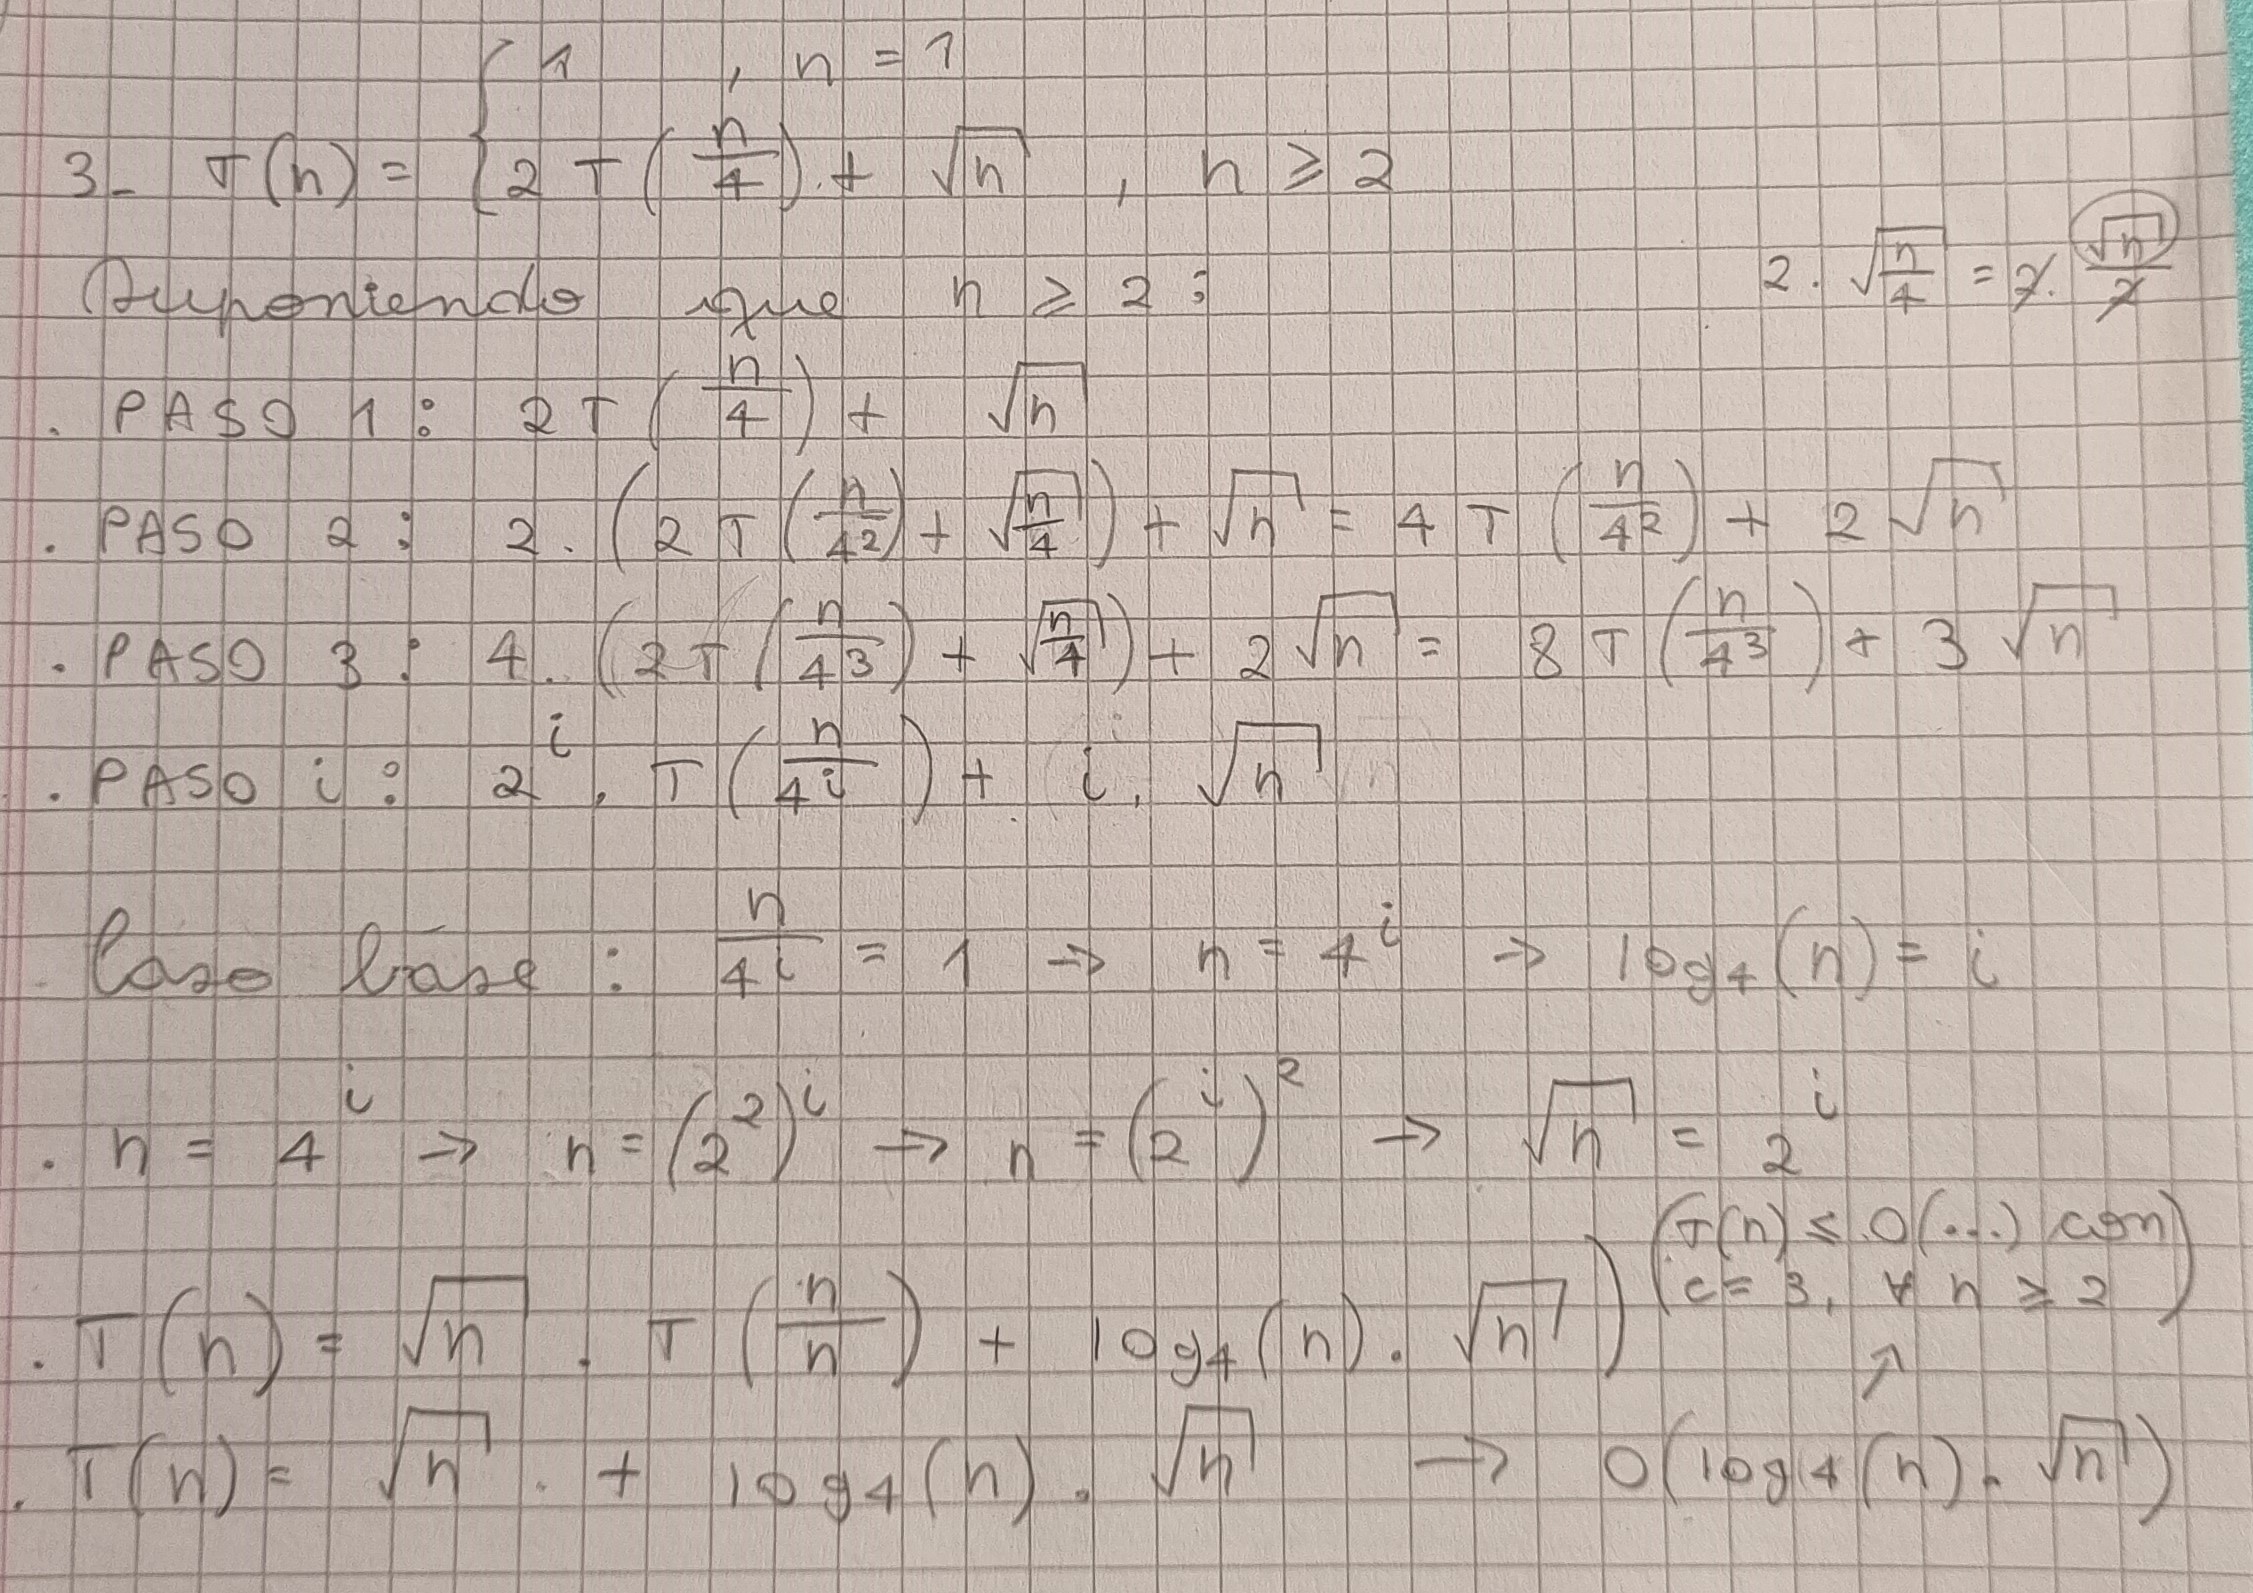 3- T(n) = { 1 , n = 1
2 T(n/4) + √n , n ≥ 2
Suponiendo que n ≥ 2 :
2 · √(n/4) = 2 · √n/2
. PASO 1 : 2 T(n/4) + √n
. PASO 2 : 2 . (2 T(n/4²) + √(n/4)) + √n = 4 T(n/4²) + 2 √n
. PASO 3 : 4 . (2 T(n/4³) + √(n/4)) + 2 √n = 8 T(n/4³) + 3 √n
. PASO i : 2ⁱ . T(n/4ⁱ) + i . √n
. Caso base : n/4ⁱ = 1 → n = 4ⁱ → log₄(n) = i
. n = 4ⁱ → n = (2²)ⁱ → n = (2ⁱ)² → √n = 2ⁱ
(T(n) ≤ O(...) con
c = 3, ∀ n ≥ 2)
. T(n) = √n . T(n/n) + log₄(n) . √n )
↗
. T(n) = √n . + log₄(n) . √n → O(log₄(n) . √n)